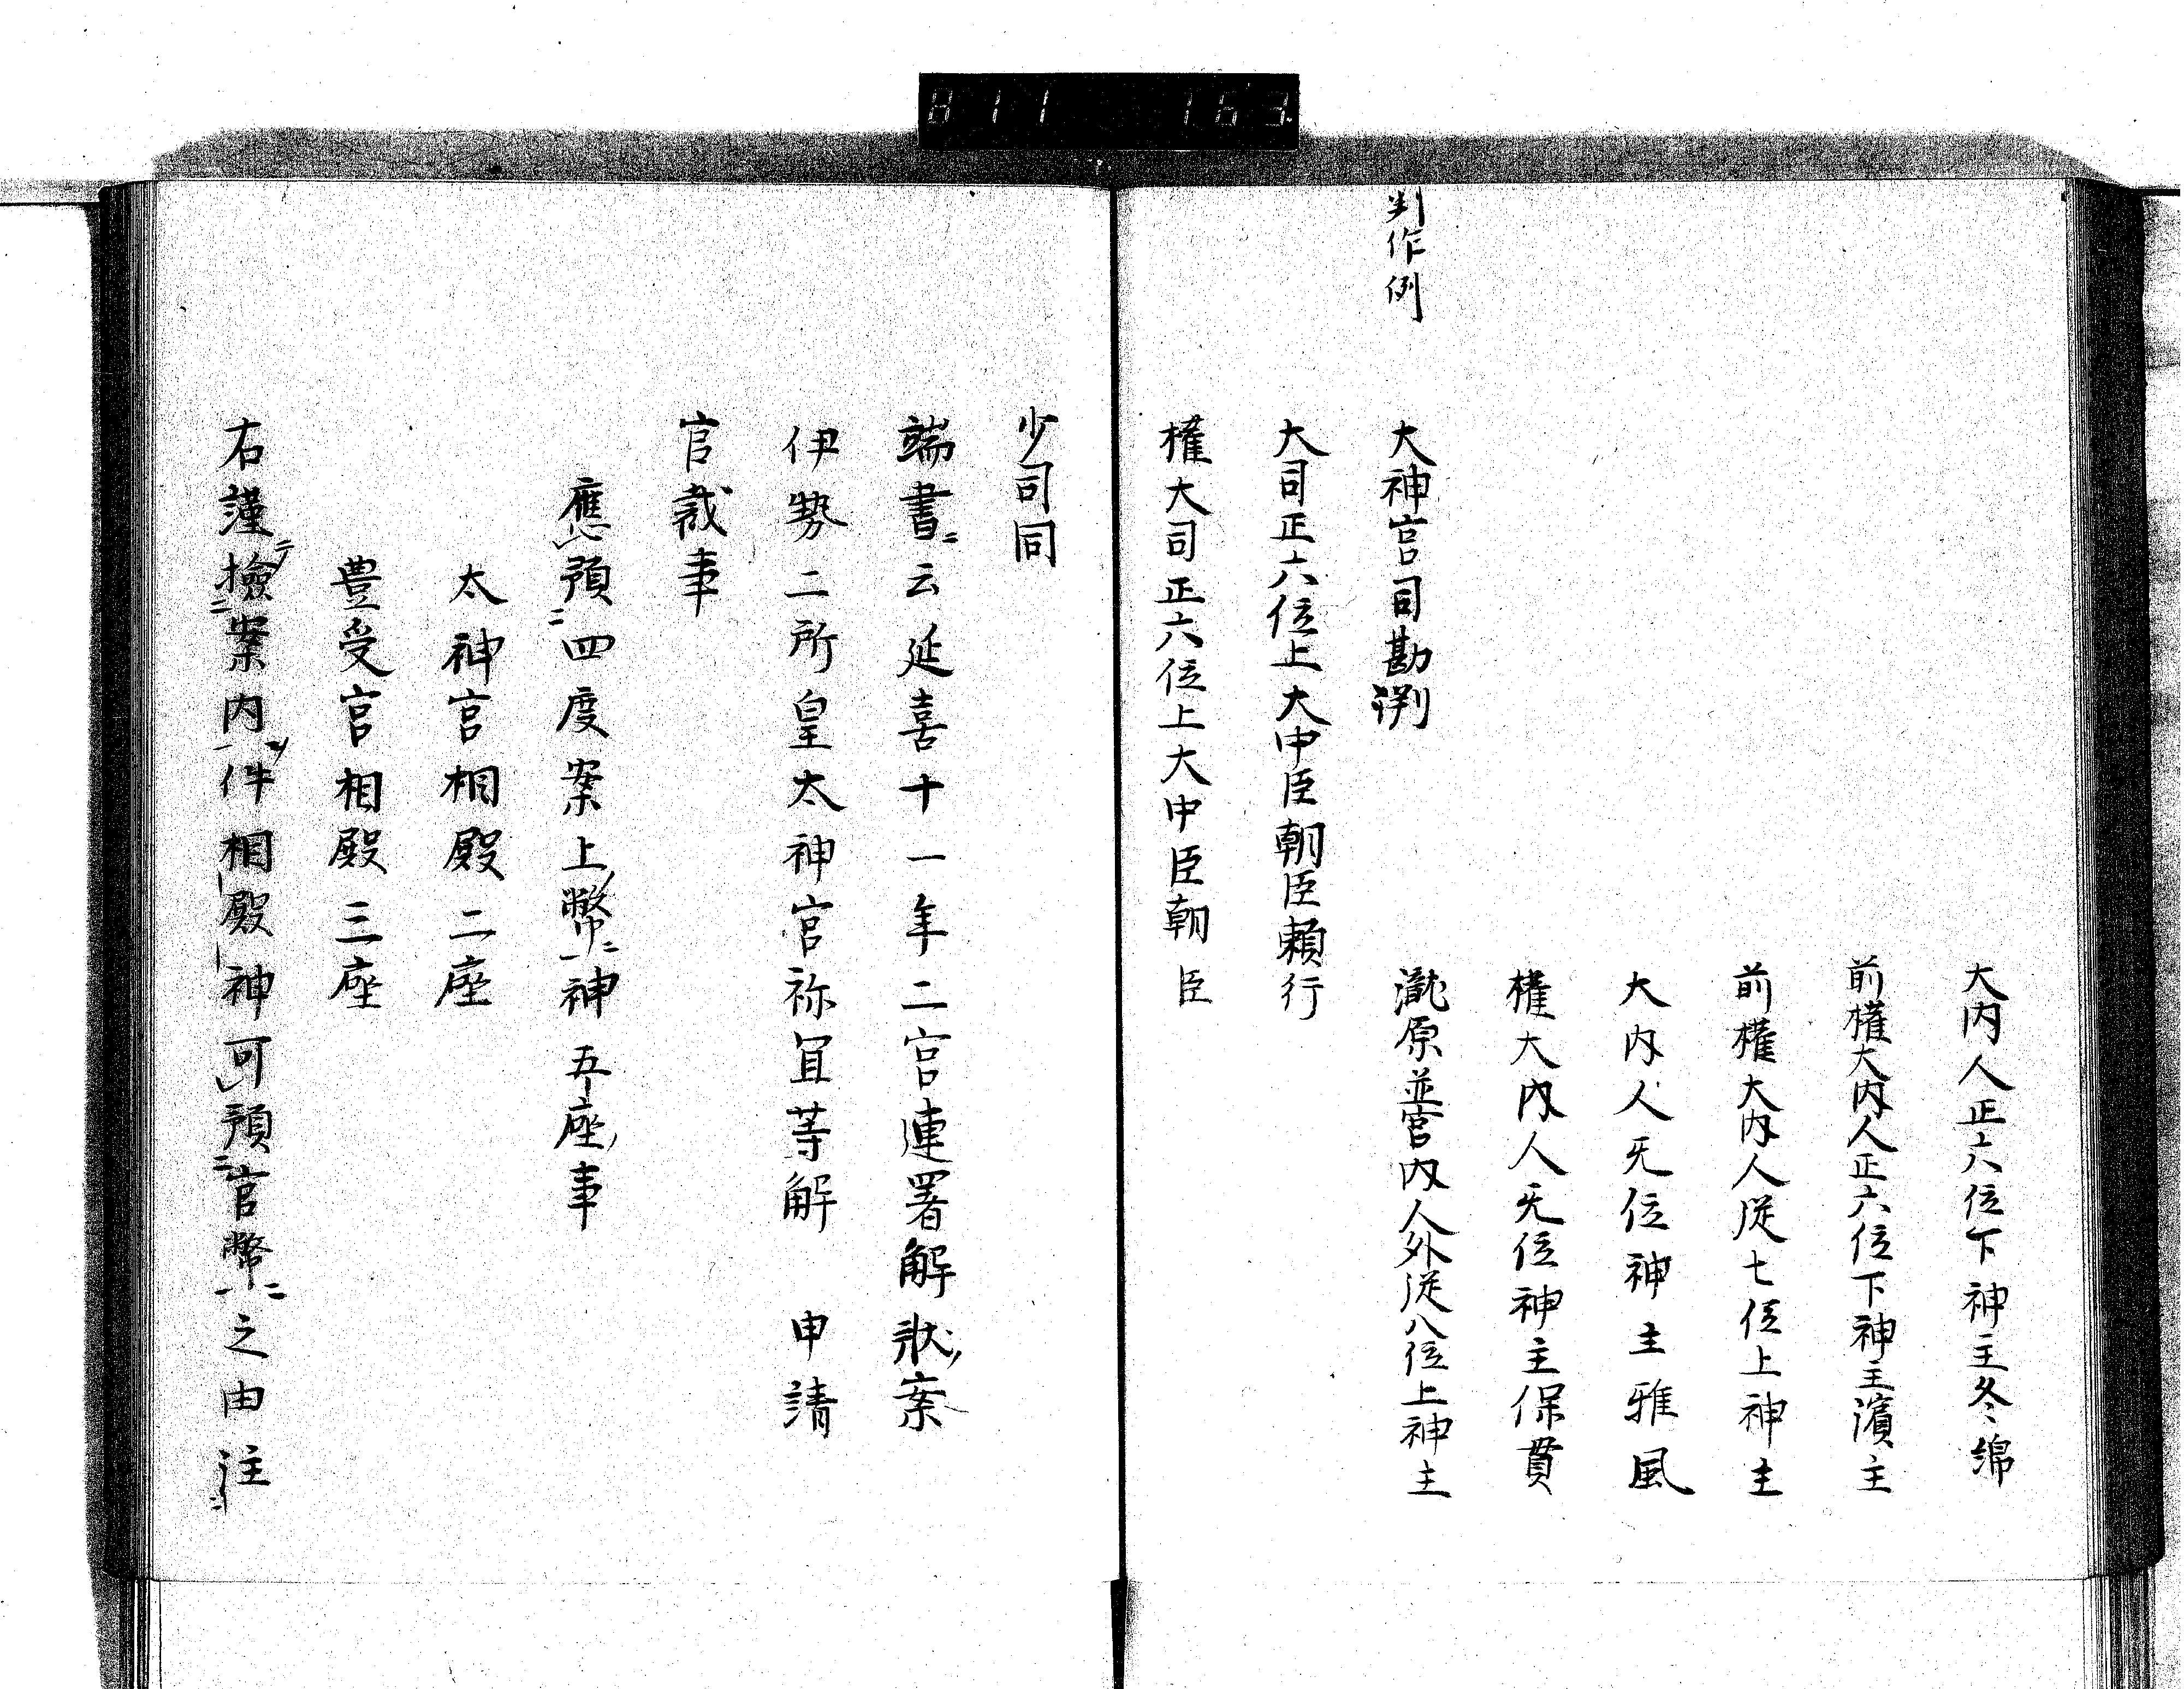 811 163
大内人正六位下神主冬綿
前権大内人正六位下神主濱主
前権大内人従七位上神主
大内人旡位神主雅風
権大内人旡位神主保貫
瀧原並宮内人外従八位上神主
判作例
大神宮司勘判
大司正六位上大中臣朝臣頼行
権大司正六位上大中臣朝臣
少司同
端書ニ云延喜十一年二宮連署解状ノ案
伊勢二所皇太神宮祢冝等解　申請
官裁事
應預四度案上幣神五座事
太神宮相殿二座
豊受宮相殿三座
右謹檢案内件相殿神可預官幣之由注